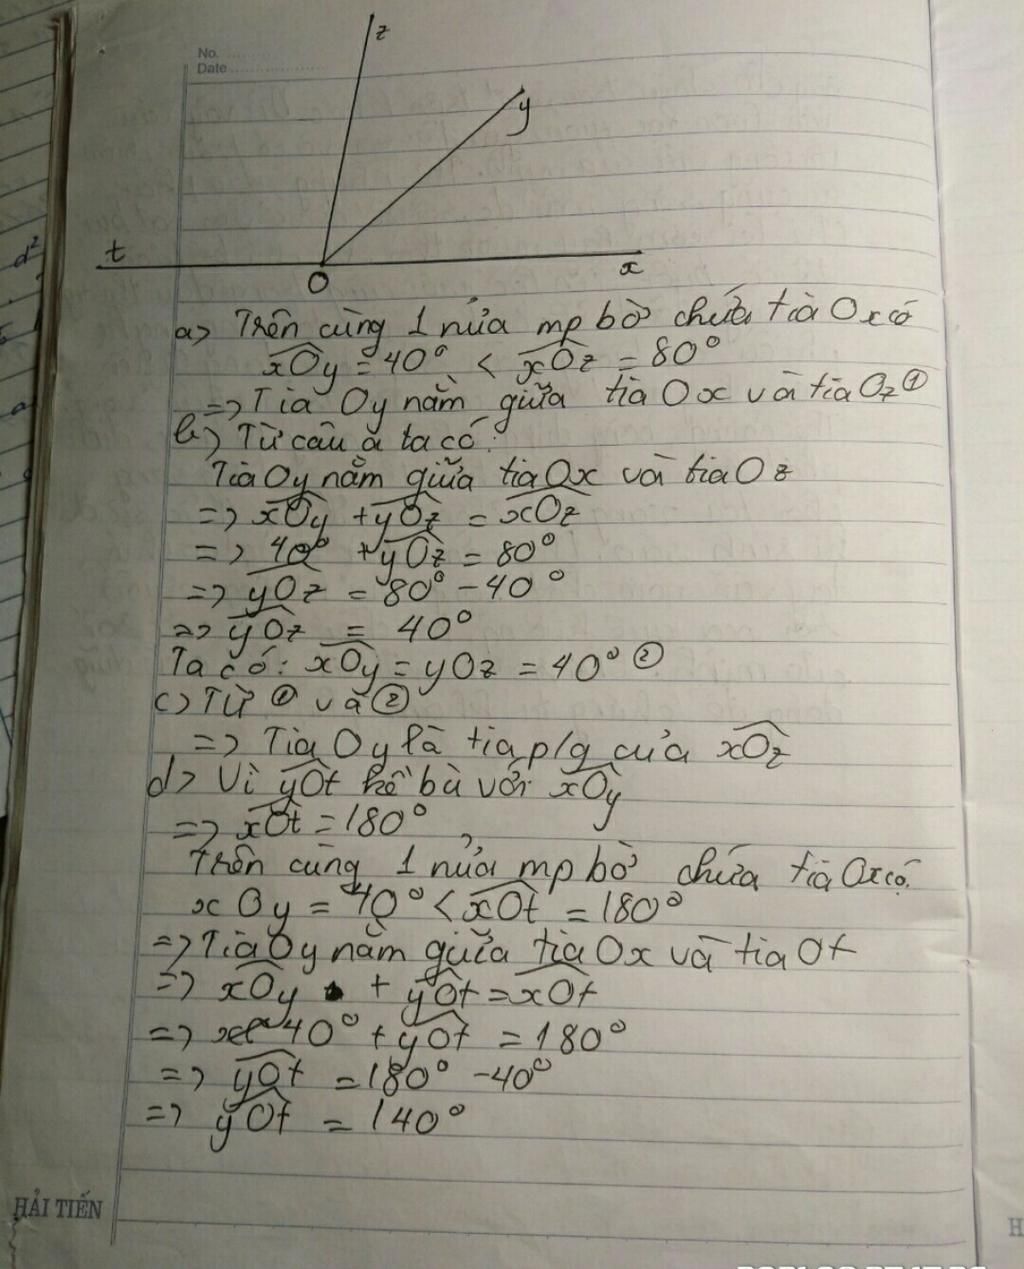 No.
Date
z
y
t
O
x
d²
a) Trên cùng 1 nửa mp bờ chứa tia Ox có
xOy = 40° < xOz = 80°
=> Tia Oy nằm giữa tia Ox và tia Oz ①
b) Từ câu a ta có:
Tia Oy nằm giữa tia Ox và tia Oz
=> xOy + yOz = xOz
=> 40° + yOz = 80°
=> yOz = 80° - 40°
=> yOz = 40°
Ta có: xOy = yOz = 40° ②
c) Từ ① và ②
=> Tia Oy là tia p/g của xOz
d) Vì yOt kề bù với xOy
=> xOt = 180°
Trên cùng 1 nửa mp bờ chứa tia Ox có.
xOy = 40° < xOt = 180°
=> Tia Oy nằm giữa tia Ox và tia Ot
=> xOy + yOt = xOt
=> 40° + yOt = 180°
=> yOt = 180° - 40°
=> yOt = 140°
HẢI TIẾN
H